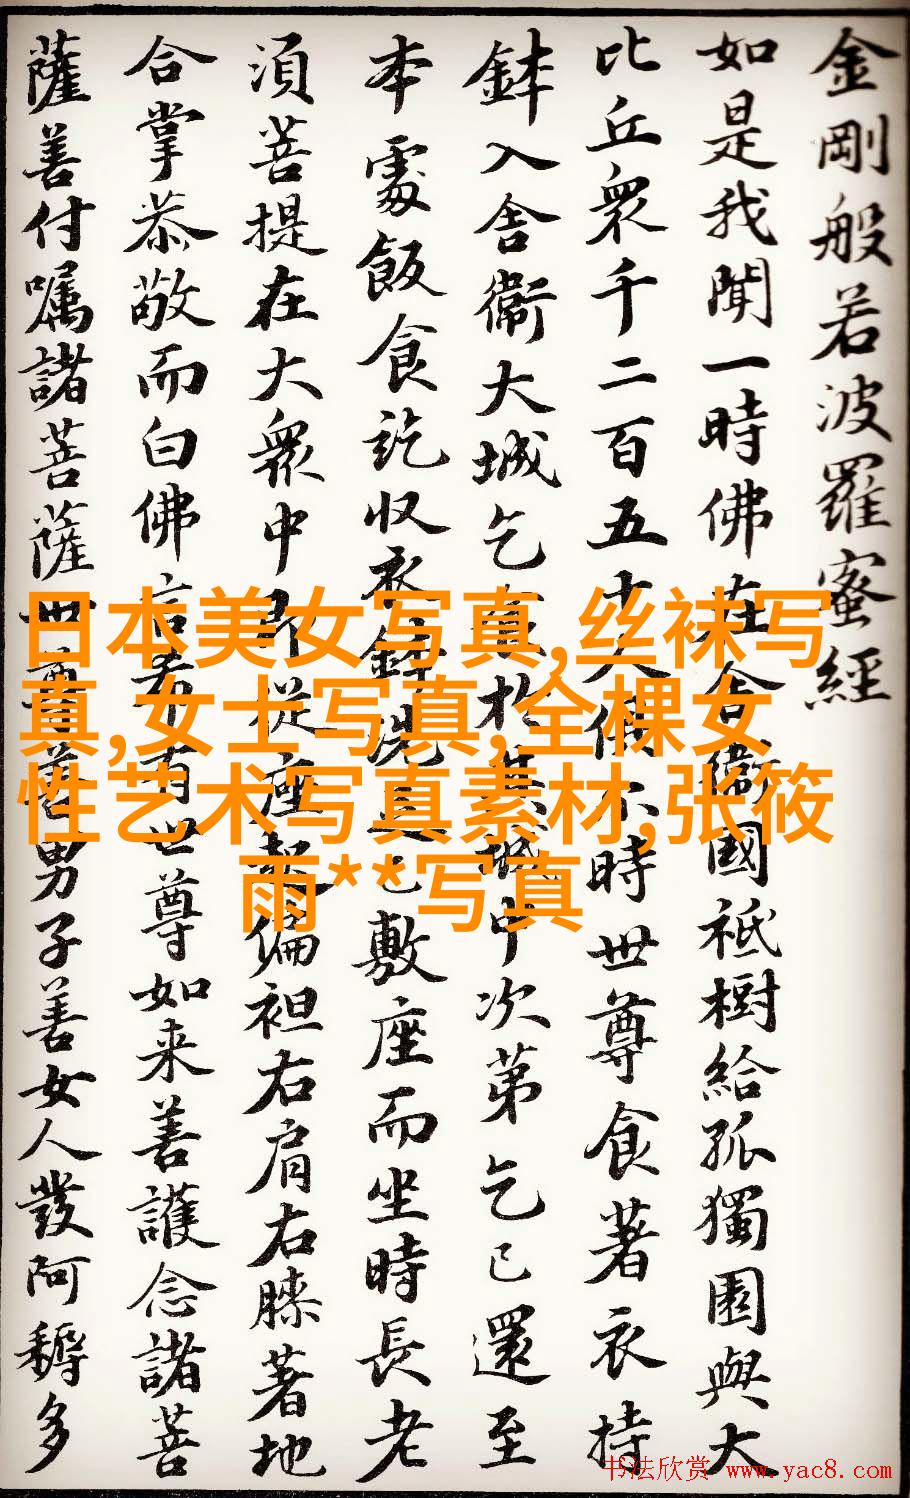 金剛般若波羅蜜經
如是我聞一時佛在舍衞國祇樹給孤獨園與大
比丘衆千二百五十人俱尒時世尊食著衣持
鉢入舎衞大城乞食於其城中次第乞已還至
本處飯食訖収衣鉢洗足已敷座而坐時長老
湏菩提在大衆中即從座起偏袒右肩右膝著地
合掌恭敬而白佛言希有世尊如来善護念諸菩
薩善付嘱諸菩薩世尊善男子善女人發阿耨多
日本美女写真,丝袜写
真,女士写真,全棵女
性艺术写真素材,张筱
雨**写真
书法欣赏 www.yac8.com